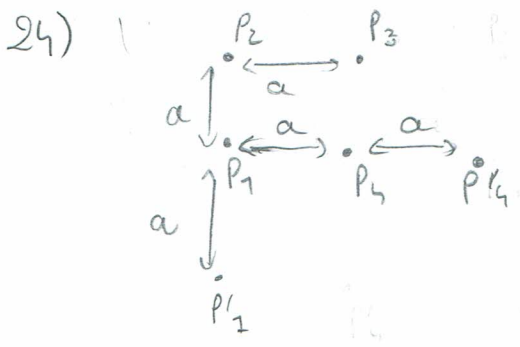 24)
P2 P3
a
a
a a
P1 P4 P'4
a
P'1